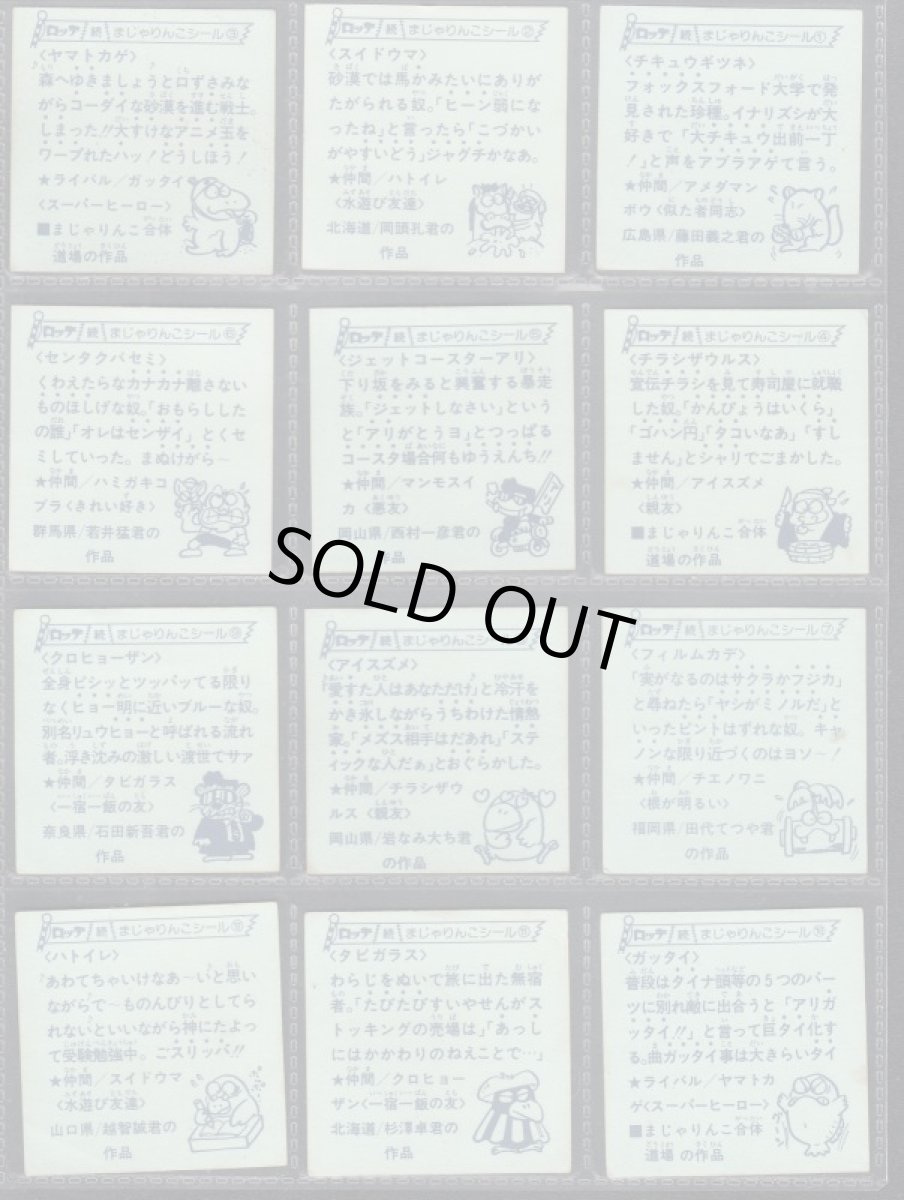 ロッテ 続 まじゃりんこシール③
〈ヤマトカゲ〉
森へゆきましょうと口ずさみな
がらコーダイな砂漠を進む戦士。
しまった!!大すけなアニメ玉を
ワープれたハッ！どうしほう！
★ライバル／ガッタイ
〈スーパーヒーロー〉
■まじゃりんこ合体
道場の作品
ロッテ 続 まじゃりんこシール②
〈スイドウマ〉
砂漠では馬かみたいにありが
たがられる奴。「ヒーン弱にな
ったね」と言ったら「こづかい
がやすいどう」ジャグチかなあ。
★仲間／ハトイレ
〈水遊び友達〉
北海道／岡頭孔君の
作品
ロッテ 続 まじゃりんこシール①
〈チキュウギツネ〉
フォックスフォード大学で発
見された珍種。イナリズシが大
好きで「大チキュウ出前一丁
！」と声をアブラアゲて言う。
★仲間／アメダマン
ボウ〈似た者同志〉
広島県／藤田義之君の
作品
ロッテ 続 まじゃりんこシール⑥
〈センタクバセミ〉
くわえたらなカナカナ離さない
ものほしげな奴。「おもらしした
の誰」「オレはセンザイ」とくセ
ミしていった。まぬけがら〜
★仲間／ハミガキコ
ブラ〈きれい好き〉
群馬県／若井猛君の
作品
ロッテ 続 まじゃりんこシール⑤
〈ジェットコースターアリ〉
下り坂をみると興奮する暴走
族。「ジェットしなさい」という
と「アリがとうヨ」とつっぱる
コースタ場合何もゆうえんち!!
★仲間／マンモスイ
カ〈悪友〉
岡山県／西村一彦君の
作品
ロッテ 続 まじゃりんこシール④
〈チラシザウルス〉
宣伝チラシを見て寿司屋に就職
した奴。「かんぴょうはいくら」
「ゴハン円」「タコいなあ」「すし
ません」とシャリでごまかした。
★仲間／アイスズメ
〈親友〉
■まじゃりんこ合体
道場の作品
SOLD OUT
ロッテ 続 まじゃりんこシール
〈クロヒョーザン〉
全身ビシッとツッパッてる限り
なくヒョー明に近いブルーな奴。
別名リュウヒョーと呼ばれる流れ
者。浮き沈みの激しい渡世でサァ
★仲間／タビガラス
〈一宿一飯の友〉
奈良県／石田新吾君の
作品
ロッテ 続 まじゃりんこシール
〈アイスズメ〉
「愛すた人はあなただけ」と冷汗を
かき氷しながらうちわけた情熱
家。「メズス相手はだあれ」「ステ
ィックな人だぁ」とおぐらかした。
★仲間／チラシザウ
ルス〈親友〉
岡山県／岩なみ大ち君
の作品
ロッテ 続 まじゃりんこシール⑦
〈フィルムカデ〉
「実がなるのはサクラかフジカ」
と尋ねたら「ヤシがミノルだ」と
いったピントはずれな奴。キャ
ノンな限り近づくのはヨソ〜！
★仲間／チエノワニ
〈根が明るい〉
福岡県／田代てつや君
の作品
ロッテ 続 まじゃりんこシール
〈ハトイレ〉
「あわてちゃいけなあ〜い」と思い
ながらで〜ものんびりとしてら
れないといいながら神にたよっ
て受験勉強中。ごスリッパ!!
★仲間／スイドウマ
〈水遊び友達〉
山口県／越智誠君の
作品
ロッテ 続 まじゃりんこシール
〈タビガラス〉
わらじをぬいで旅に出た無宿
者。「たびたびすいやせんがス
トッキングの売場は」「あっし
にはかかわりのねえことで…」
★仲間／クロヒョー
ザン〈一宿一飯の友〉
北海道／杉澤卓君の
作品
ロッテ 続 まじゃりんこシール
〈ガッタイ〉
普段はタイナ頭等の5つのパー
ツに別れ敵に出合うと「アリガ
ッタイ!!」と言って巨タイ化す
る。曲ガッタイ事は大きらいタイ
★ライバル／ヤマトカ
ゲ〈スーパーヒーロー〉
■まじゃりんこ合体
道場の作品